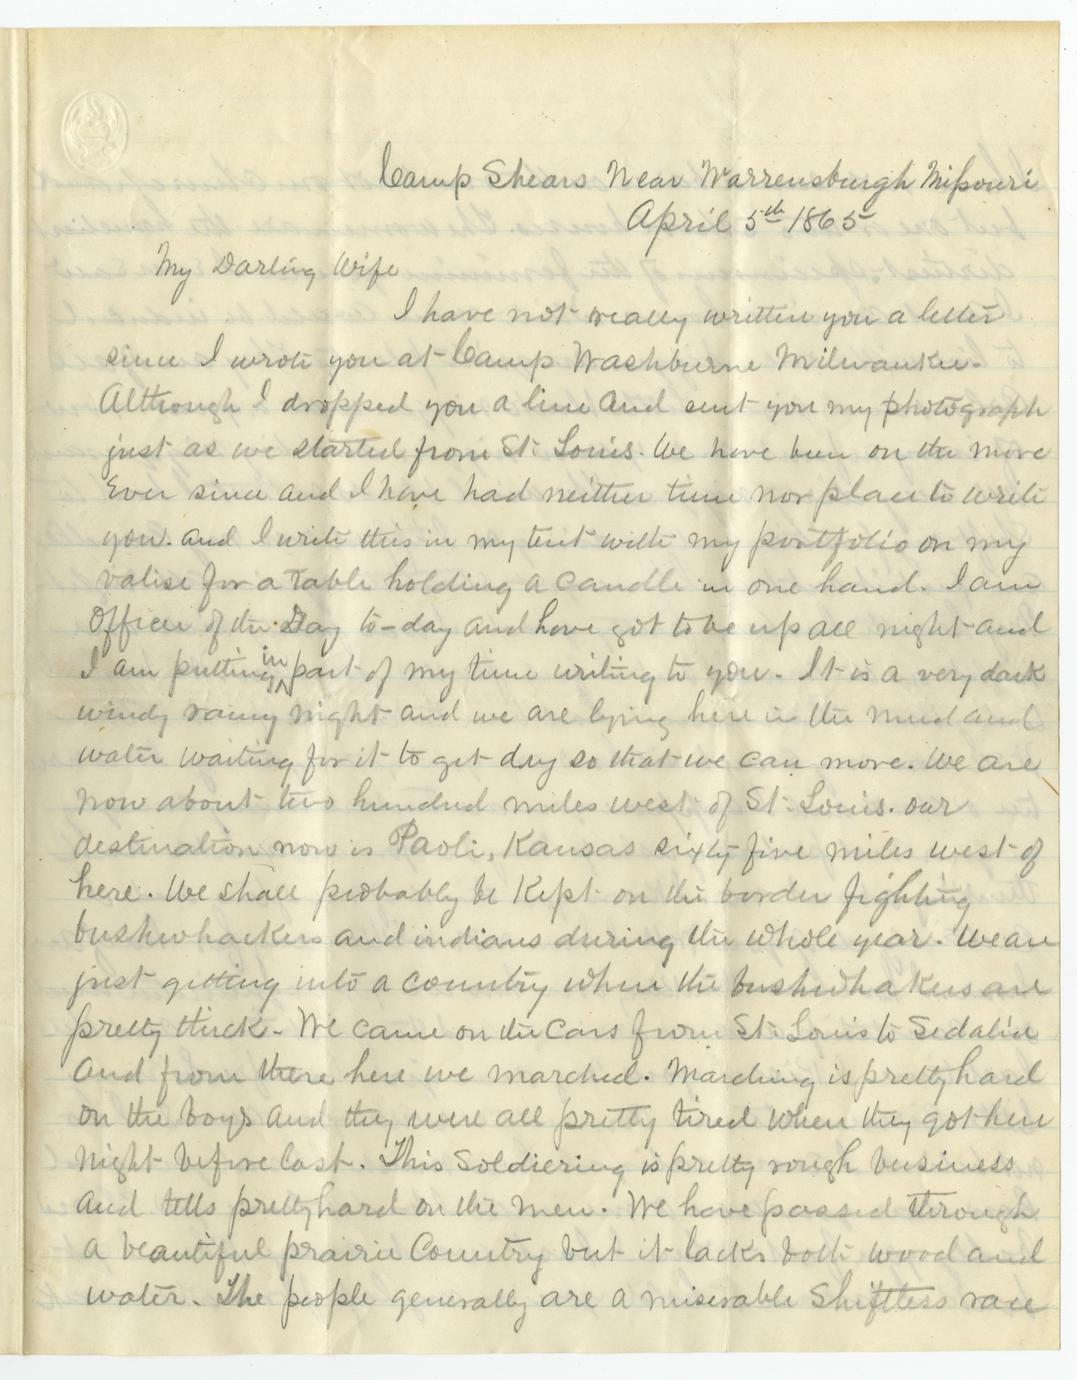 Camp Shears Near Warrensburgh Missouri
April 5th 1865
My Darling Wife
I have not really written you a letter
since I wrote you at Camp Washburne Milwaukee.
Although I dropped you a line and sent you my photograph
just as we started from St. Louis. We have been on the move
Ever since and I have had neither time nor place to write
you. and I write this in my tent with my portfolio on my
valise for a table holding a candle in one hand. I am
Officer of the Day to-day and have got to be up all night and
I am putting in part of my time writing to you. It is a very dark
windy rainy night and we are lying here in the mud and
water waiting for it to get dry so that we can move. We are
now about two hundred miles west of St. Louis. our
destination now is Paoli, Kansas sixty five miles west of
here. We shall probably be Kept on the border fighting
bushwhackers and indians during the whole year. We are
just getting into a country where the bushwhakers are
pretty thick. We came on the Cars from St. Louis to Sedalia
and from there here we marched. Marching is pretty hard
on the boys and they were all pretty tired when they got here
night before last. This Soldiering is pretty rough business
and tells pretty hard on the men. We have passed through
a beautiful prairie Country but it lacks both wood and
water. The people generally are a miserable Shiftless race